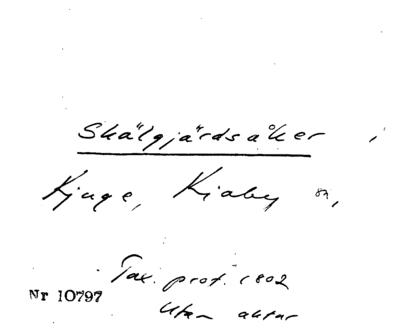 Skälgjärdsåker,
Kjuge, Kiaby sn,
Tax. prot. 1802
Nr 10797
Utan aktar